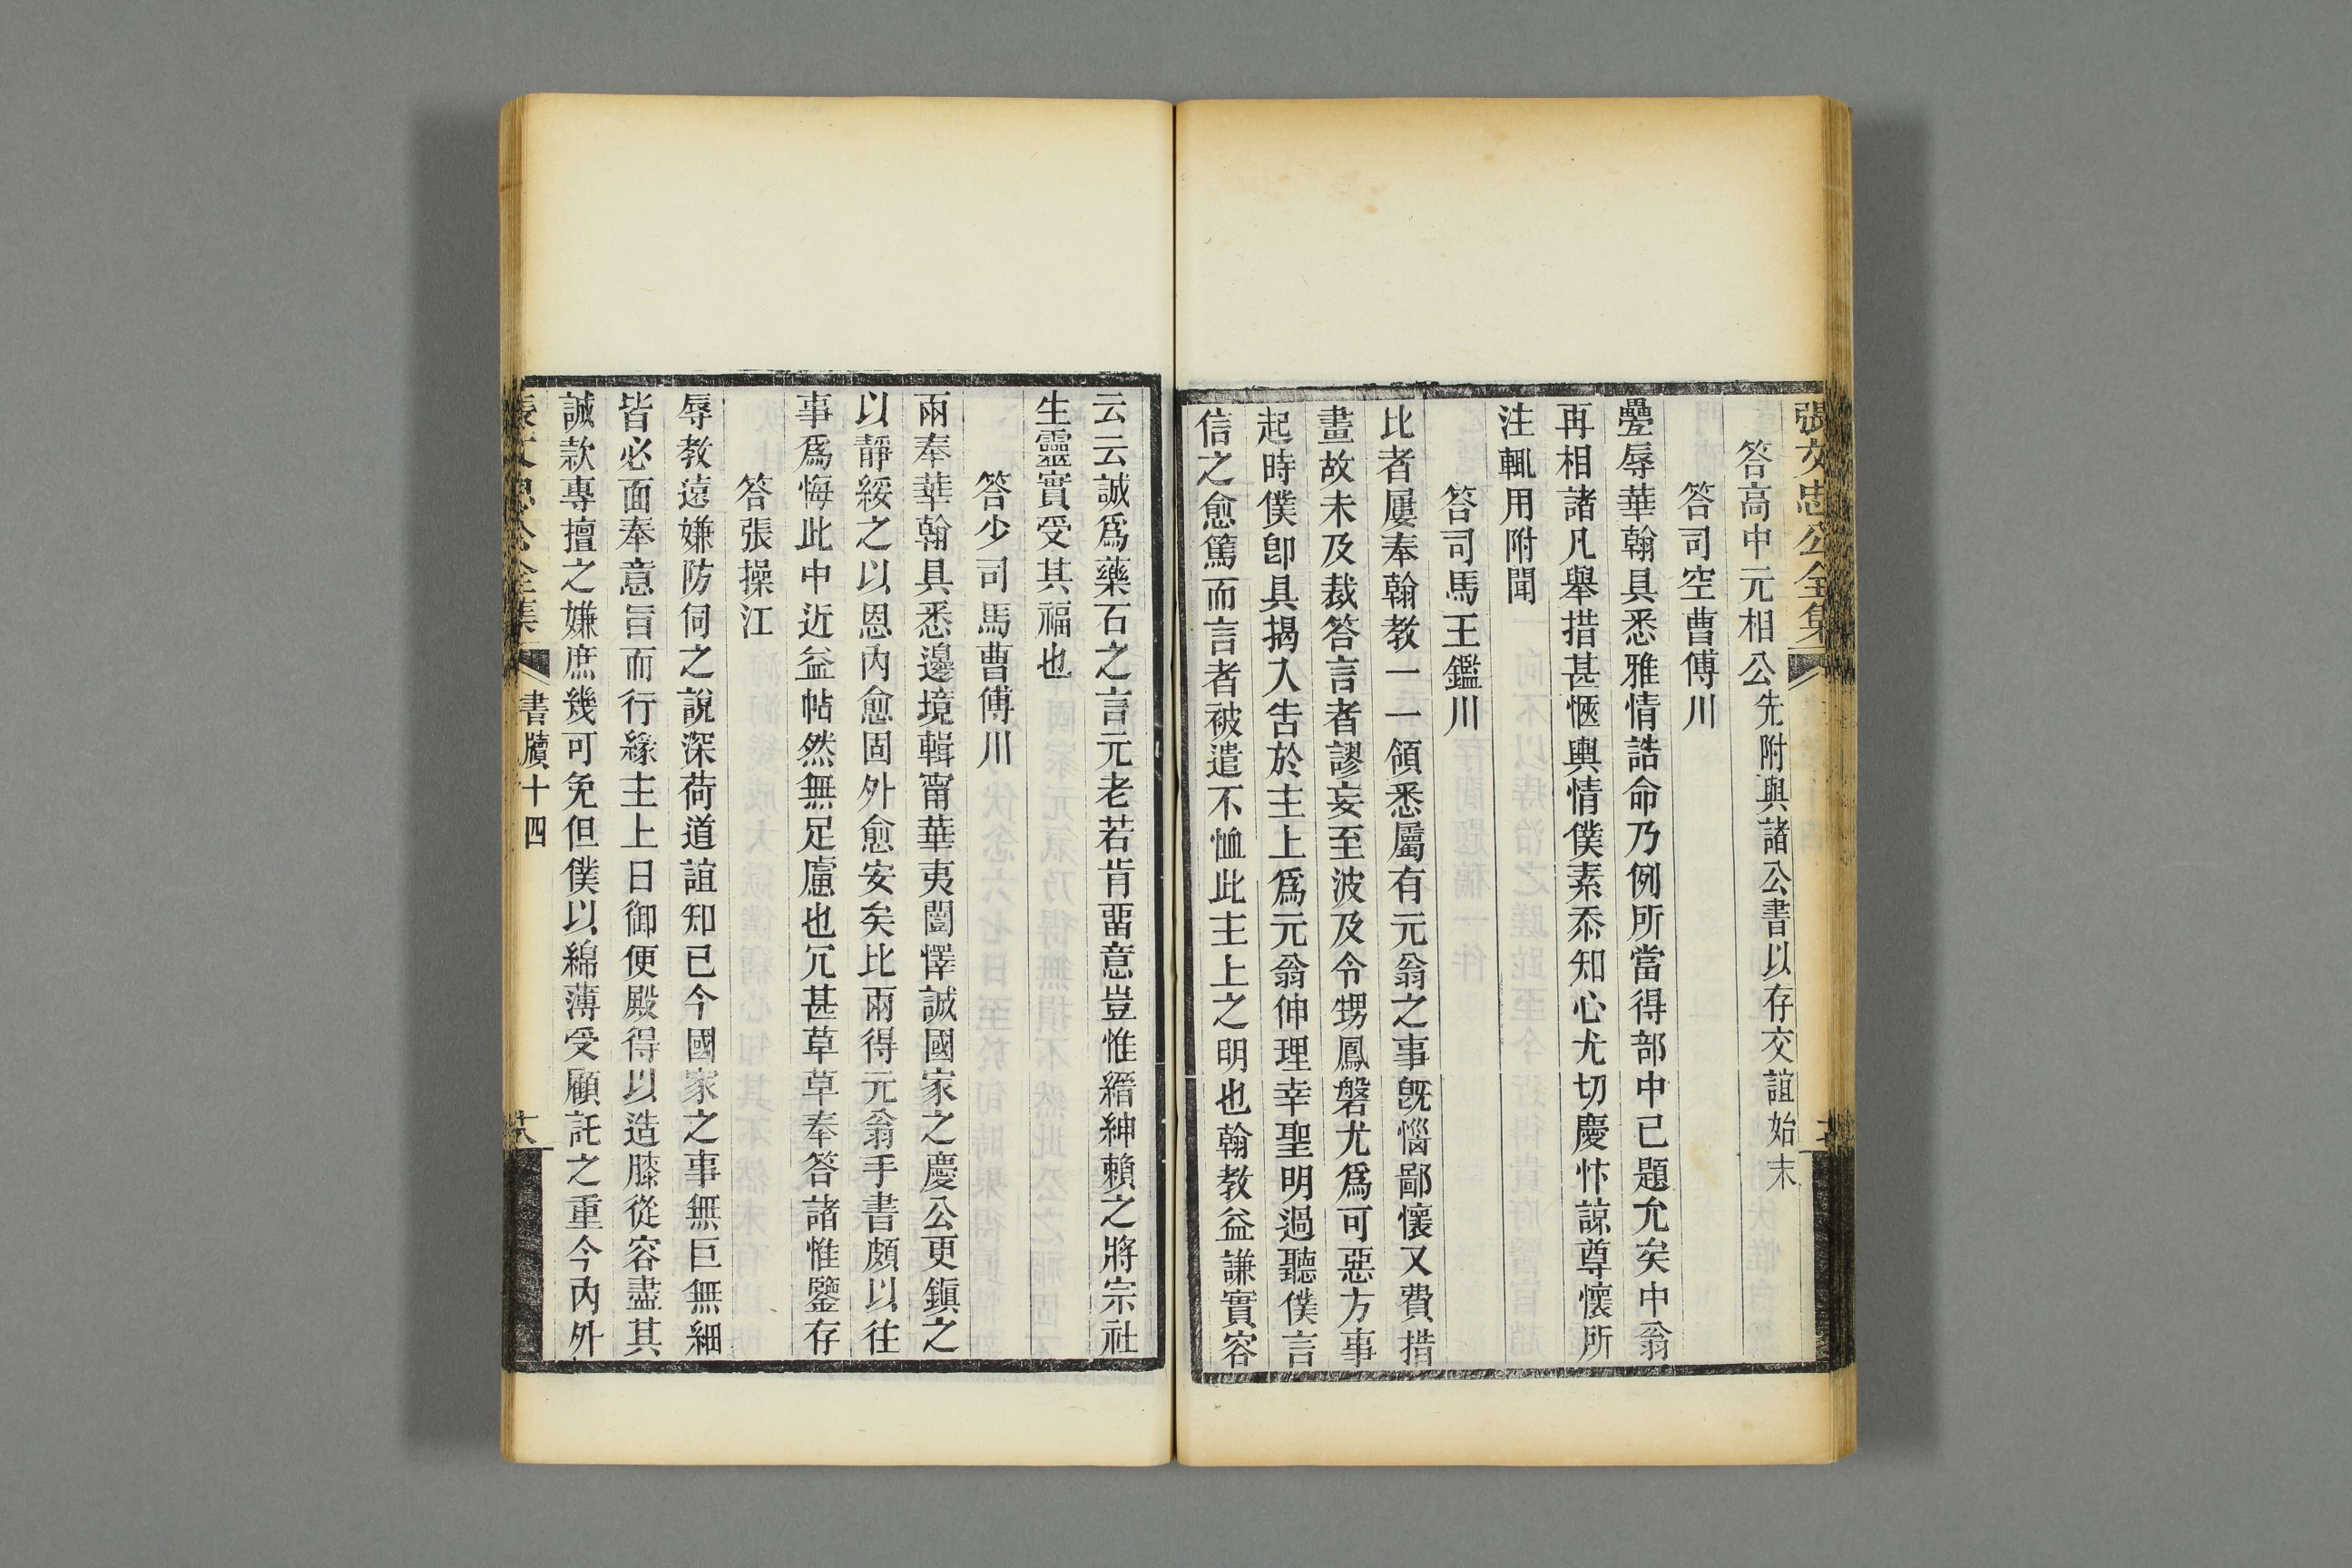 張文忠公全集
答高中元相公先附與諸公書以存交誼始末
答司空曹傅川
疊辱華翰具悉雅情誥命乃例所當得部中已題允矣中翁
再相諸凡舉措甚愜輿情僕素忝知心尤切慶忭諒尊懷所
注輒用附聞
答司馬王鑑川
比者屢奉翰教一一領悉屬有元翁之事既惱鄙懷又費措
畫故未及裁答言者謬妄至波及令甥鳳磐尤爲可惡方事
起時僕卽具揭入告於主上爲元翁伸理幸聖明過聽僕言
信之愈篤而言者被遣不恤此主上之明也翰教益謙實容
云云誠爲藥石之言元老若肯畱意豈惟縉紳賴之將宗社
生靈實受其福也
答少司馬曹傅川
兩奉華翰具悉邊境輯甯華夷闓懌誠國家之慶公更鎭之
以靜綏之以恩內愈固外愈安矣比兩得元翁手書頗以往
事爲悔此中近益帖然無足慮也冗甚草草奉答諸惟鑒存
答張操江
辱教遠嫌防伺之說深荷道誼知己今國家之事無巨無細
皆必面奉意旨而行緣主上日御便殿得以造膝從容盡其
誠款專擅之嫌庶幾可免但僕以綿薄受顧託之重今內外
張文忠公全集 書牘十四 十八